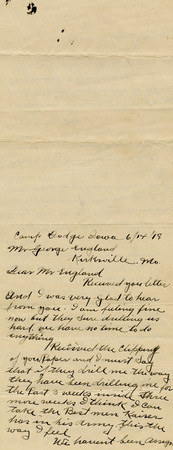 Camp Dodge Iowa 6/14/18
Mr George England
Kirksville, Mo.
Dear Mr England
Received you letter
And I was very glad to hear
from you. I am feeling fine
now but they sure drilling us
hard we have no time to do
anything
Received the Clipping
of you paper and I must say
that if they drill me the way
they have been drilling me for
the Past 3 weeks inside three
more weeks I think I can
take the Best men Kaiser
has in his army this the
way I feel
We havent been assign